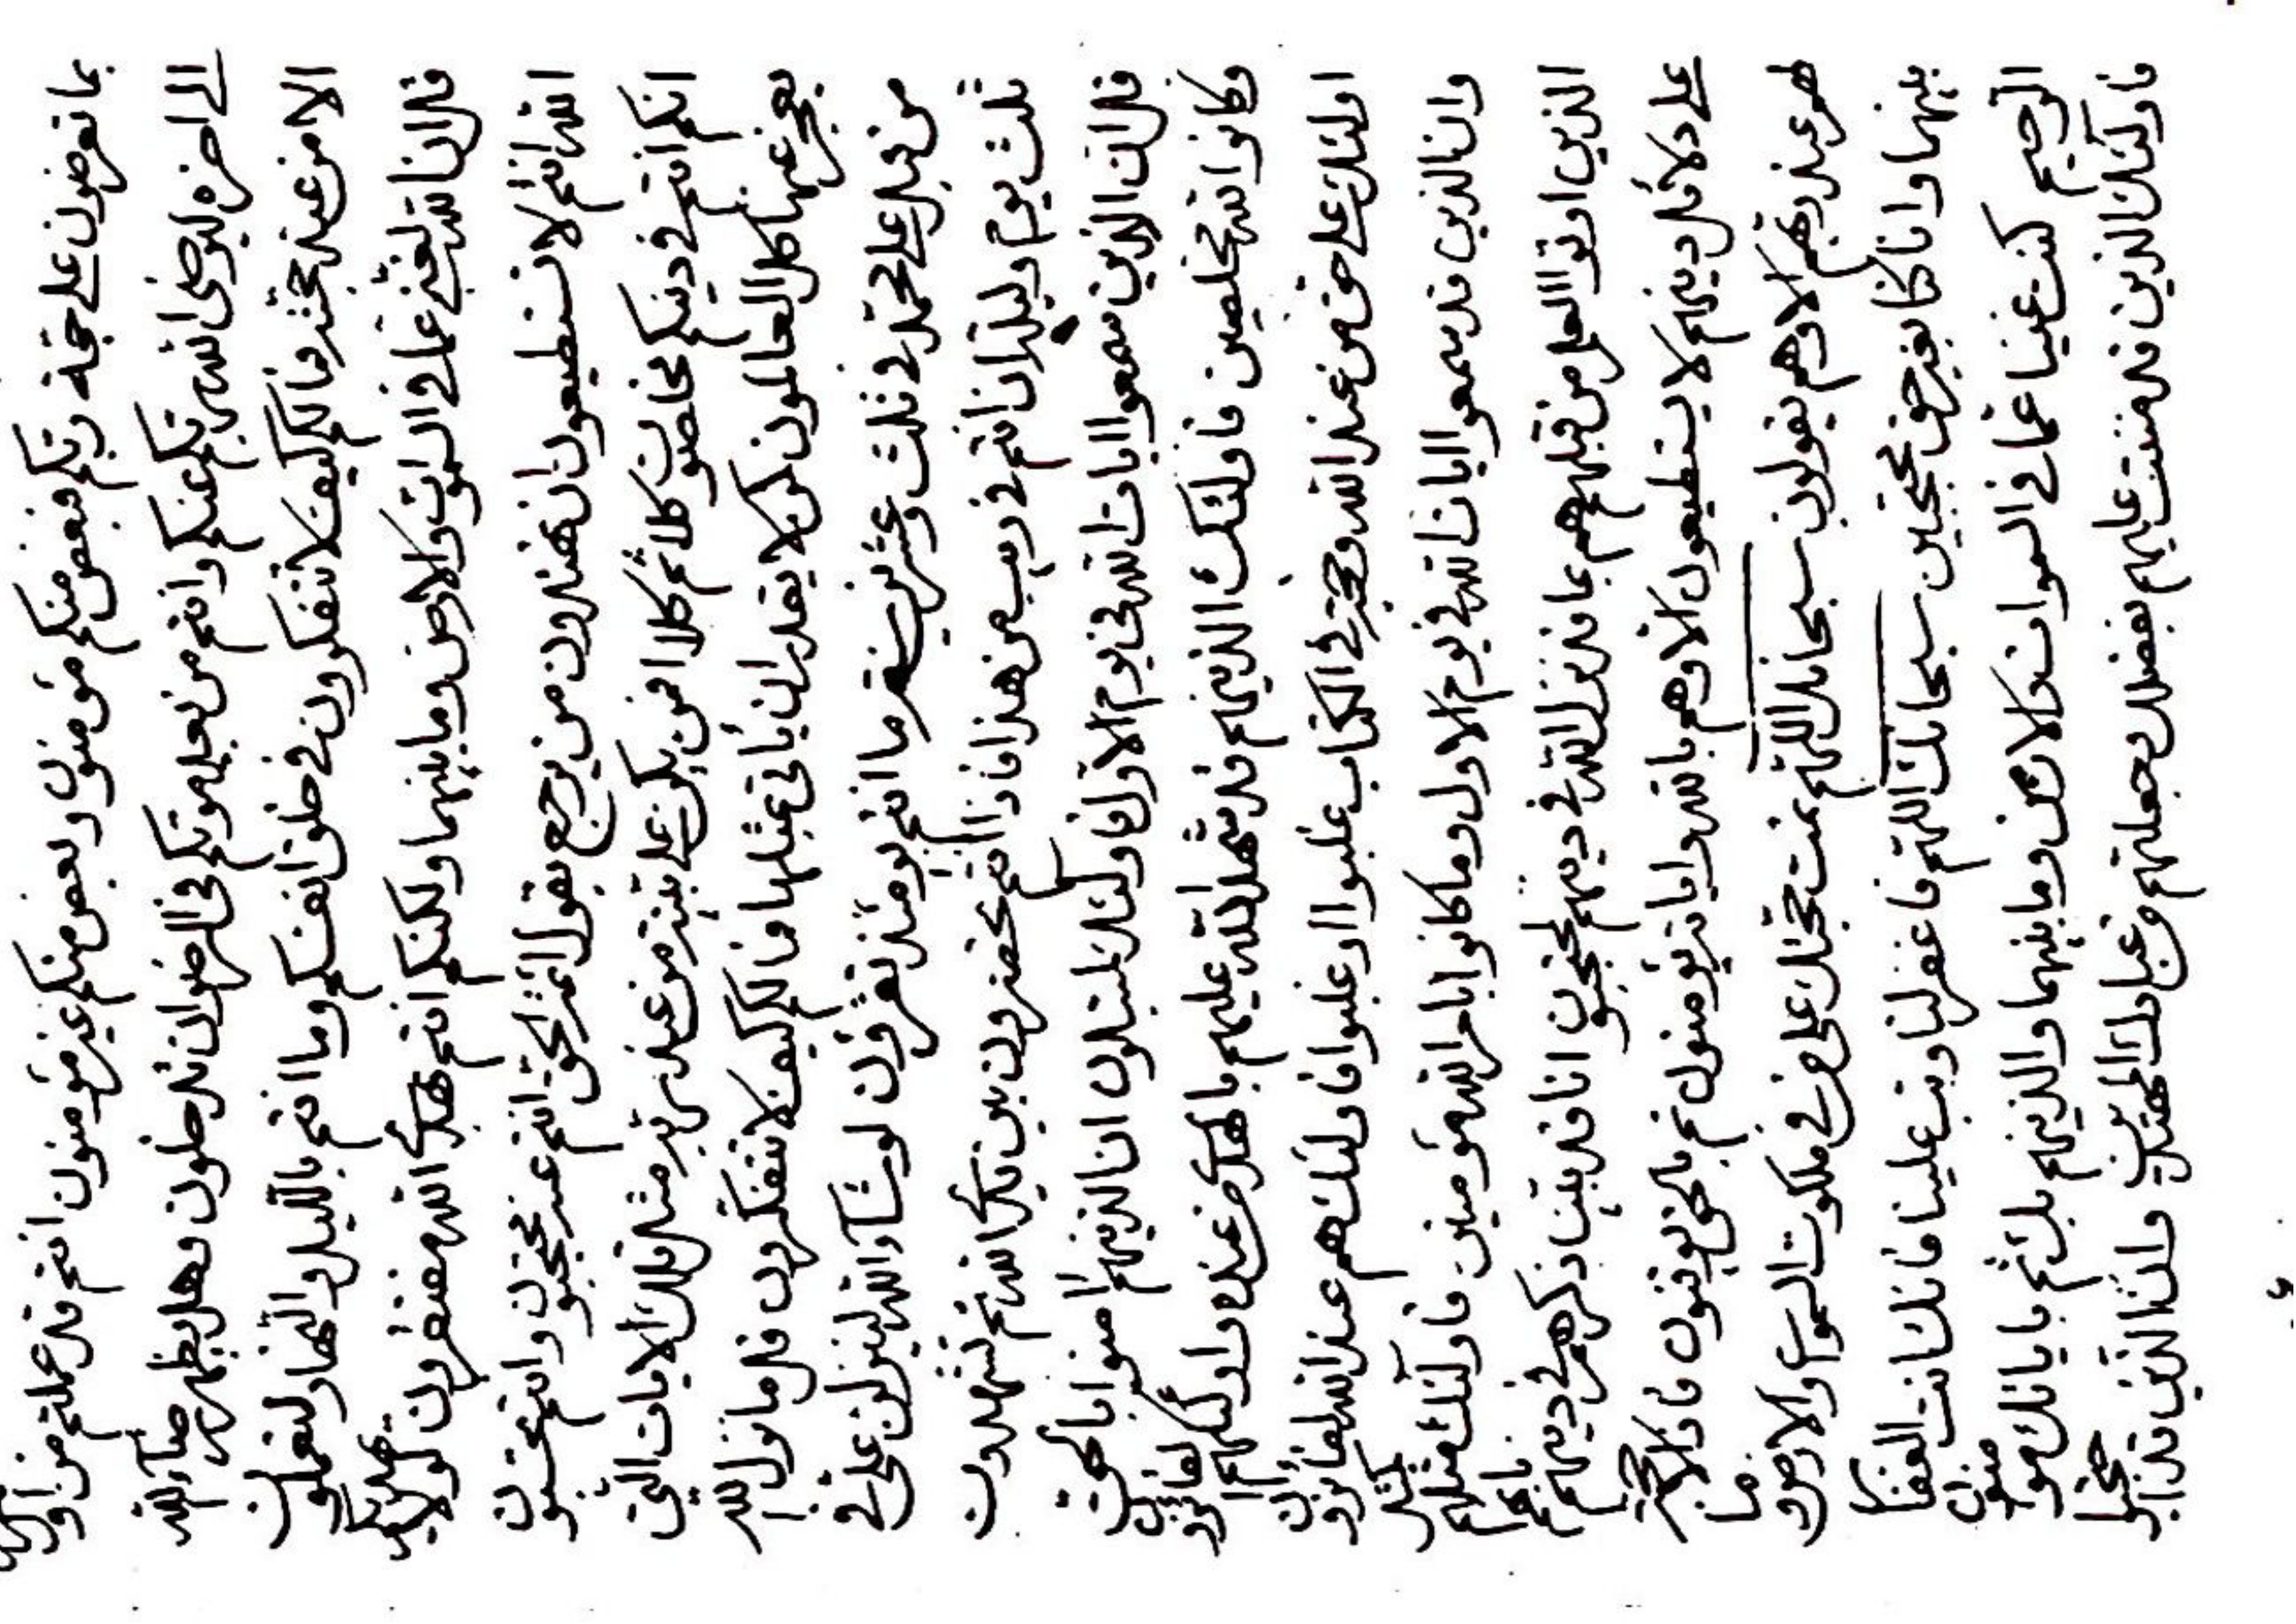 بما تعرضون على حجة ربكم فبعض منكم مؤمنون وبعض منكم غير مؤمنون انتم قد عملتم من اول
الى اخره ليرضى الله ربكم عنكم وانتم من بعد موتكم فى الرضوان تدخلون وهل يظهر رضآء الله
الا من عند حجته فما لكم كيف لا تتفكرون فى خلق انفسكم وما انتم بالليل والنهار لتعملون
قل ان الله لغنى عما فى السموات والارض وما بينهما ولكنكم انتم بهدى الله مفتقرون لولا يهديكم
الله انتم لا تستطيعون ان تهتدون من يرجع بقول ائمة الحق انتم عنه محتجبون وانتم تحسبون
انكم انتم فى دينكم مخلصون كلا ثم كلا افمن يكن على بينة من عند ربه مثل تلك الايات التى
يعجز عنها كل العالمون لن يقدر ان يأتى بمثلها فما لكم كيف لا تتفكرون قل ما نزل الله
من قبل على محمد فى ثلث وعشرين سنة ما انتم به يومئذ تفرقون لو شآء الله لينزلن على فى
ثلث يوم وليلة ان انتم فى ريب من هذا فاذا انتم تحضرون بين يدى الله ثم تشهدون
قل ان الذين سمعوا ايات الله فى يوم الاول فاولئك لمبتلون ان الذينهم امنوا بالحق
وكانوا لله مخلصين فاولئك الذينهم قد شهد الله عليهم بالهدى من عنده واولئك هم لفائزون
اولئك على حق من عند الله وحجة فى الكتاب غلبوا او غلبوا فاولئك هم عند الله لفائزون
وان الذين قد سمعوا ايات الله فى يوم الاول وما كانوا بامر الله مؤمنين فاولئك مثلهم كمثل
الذين اوتوا العلم من قبلهم هم بما قد نزل الله فى دينهم لمحتجبون انا قد بينا ذكرهم فى دينهم بانهم
على دلائل دينهم لا يستطيعون الا وهم بالله واياته يؤمنون ثم بالحق يوقنون فاذا لا حجة
لهم عند ربهم الا وهم يقولون سبحانك اللهم تمت حجتك على من فى ملكوت السموات والارض وما
بينهما وانا كنا بغير حق محتجبين سبحانك اللهم فاغفر لنا وتب علينا فانك انت الغفار
الرحيم كنت غنيا عما فى السموات والارض وما بينهما والذينهم بك ثم باياتك مؤمنون
فاولئك الذين قد مننت عليهم بفضلك وجعلتهم من عبادك المهتدين وان الذين قد احتجبوا